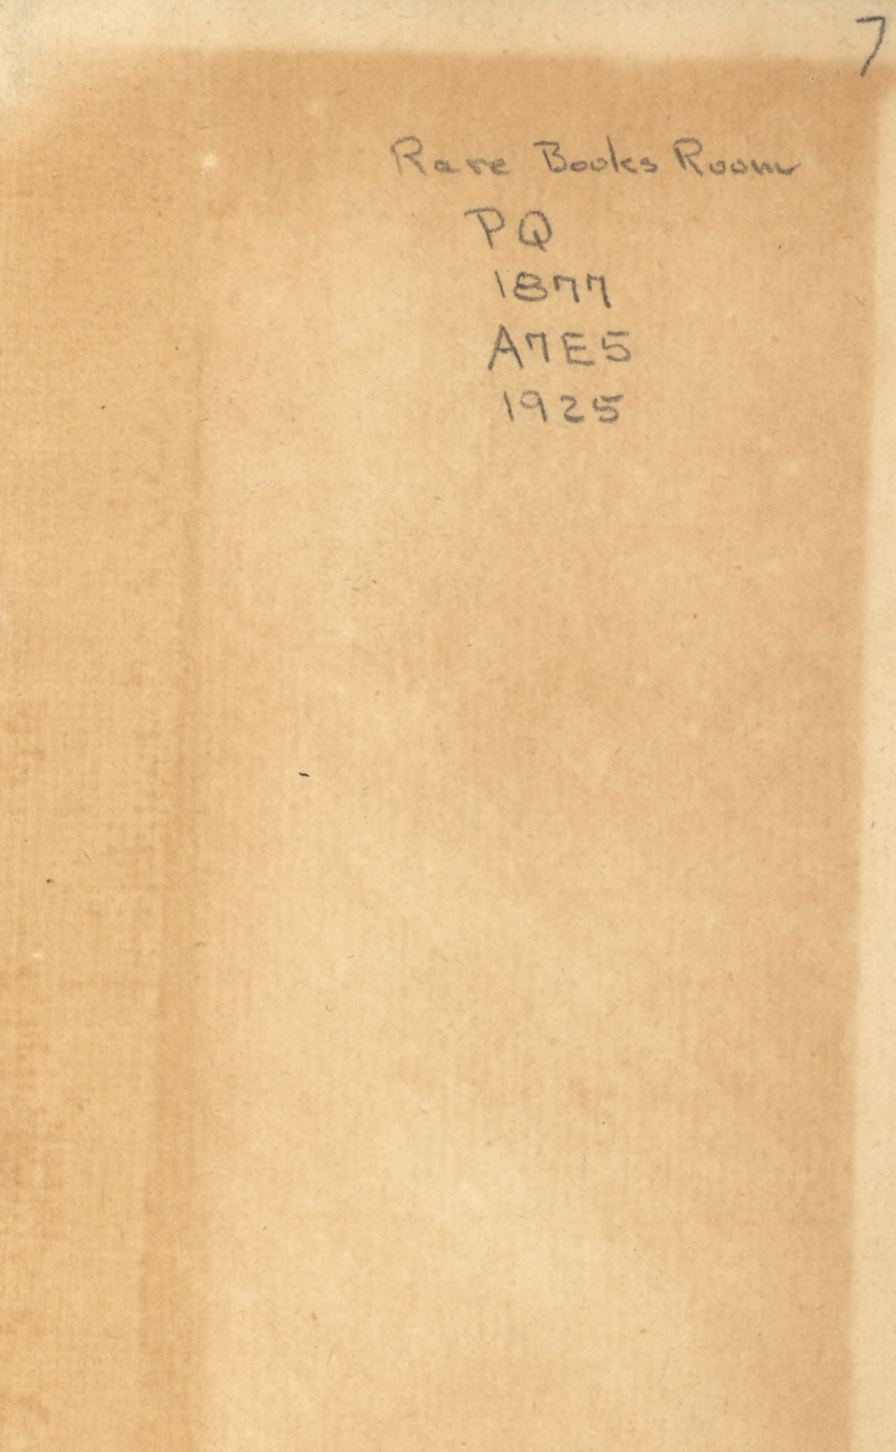 7
Rare Books Room
PQ
1877
A7E5
1925